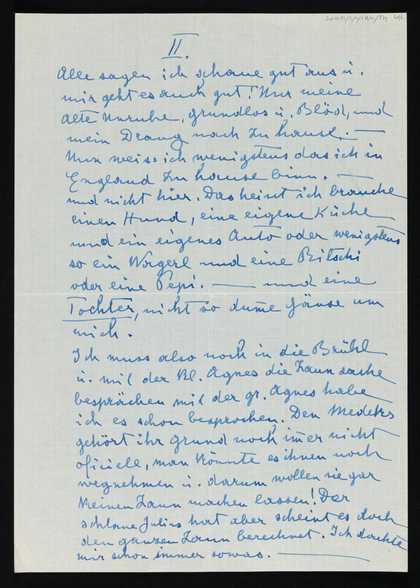 II.
Alle sagen ich schaue gut aus u.
mir geht es auch gut! Nur meine
alte Unruhe, grundlos u. Blöd, und
mein Drang nach zu hause. —
Nun weiss ich wenigstens das ich in
England zu hause binn. —
und nicht hier. Das heisst ich brauche
einen Hund, eine eigene Küche
und ein eigenes Auto oder wenigstens
so ein Wagerl und eine Bitschi
oder eine Pepi. — und eine
Tochter, nicht so dum̄e Gänse um
mich.
Ich muss also noch in die Brühl
u. mit der Kl. Agnes die Zaun sache
besprächen mit der gr. Agnes habe
ich es schon besprochen. Den
gehört ihr Grund noch im̄er nicht
oficiell, man könnte es ihnen noch
wegnehmen u. darum wollen sie gar
keinen Zaun machen lassen! Der
schlaue Julius hat aber scheint es doch
den ganzen Zaun berechnet. Ich dachte
mir schon immer sowas. —